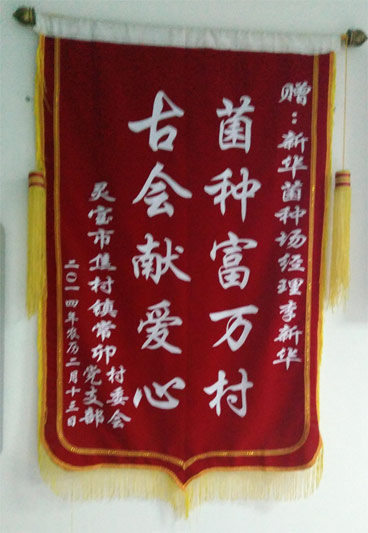 赠：新华菌种场经理李新华
菌种富万村
古会献爱心
灵宝市焦村镇常卯村委会党支部
二〇一四年农历二月十三日